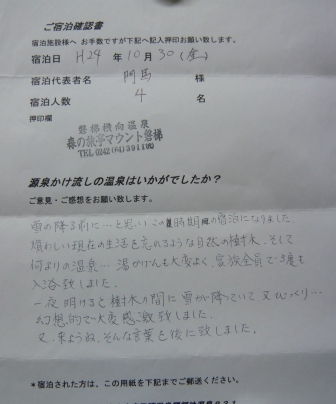 ご宿泊確認書
宿泊施設様へ お手数ですが下記へ記入押印お願い致します。
宿泊日 H24 年 10 月 30 (金)
宿泊代表者名 門馬 様
宿泊人数 4 名
押印欄
磐梯横向温泉
森の旅亭マウント磐梯
TEL 0242 (64) 3911
源泉かけ流しの温泉はいかがでしたか?
ご意見・ご感想をお願い致します。
雪の降る前に…と思いこの時期の宿泊になりました。
煩わしい現在の生活を忘れるような自然の樹木、そして
何よりの温泉… 湯かげんも大変よく、家族全員で3度も
入浴致しました。
一夜明けると樹木の間に雪が降っていて 又びっくり…
幻想的で大変感激致しました。
又、来ようね、そんな言葉を後に致しました。
*宿泊された方は、この用紙を下記までご郵送ください。